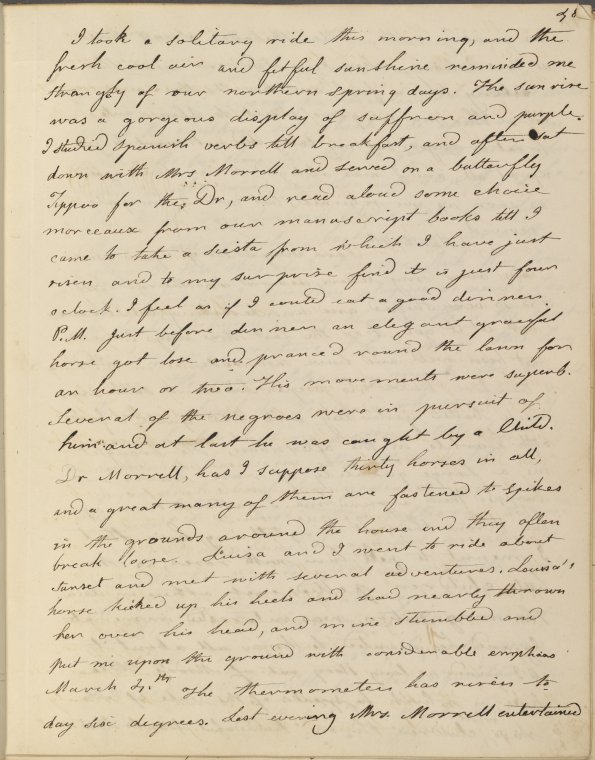 I took a solitary ride this morning, and the
fresh cool air and fitful sunshine reminded me
strangly of our northern Spring days. The sun rise
was a gorgeous display of saffron and purple.
I studied Spanish verbs till breakfast, and after sat
down with Mrs Morrell and sewed on a butterfly
for the Dr, and read aloud some choice
morceaux from our manuscript books till I
came to take a siesta from which I have just
risen and to my surprise find it is just four
oclock. I feel as if I could eat a good dinner.
P.M. Just before dinner an elegant graceful
horse got lose and pranced round the lawn for
an hour or two. His movements were superb.
Several of the negroes were in pursuit of
him and at last he was caught by a Child.
Dr Morrell, has I suppose thirty horses in all,
and a great many of them are fastened to Spikes
in the grounds around the house and they often
break loose. Luisa and I went to ride about
sunset and met with several adventures. Louisa's
horse kicked up his heels and had nearly thrown
her over his head, and mine stumbled and
put me upon the ground with considerable emphasis
March 4.th The thermometer has risen to
day six degrees. Last evening Mrs. Morrell entertained